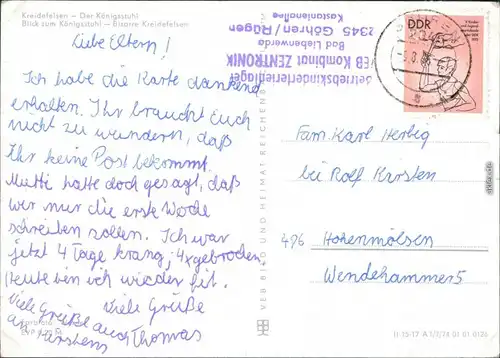 Kreidefelsen - Der Königsstuhl
Blick zum Königsstuhl - Bizarre Kreidefelsen
Liebe Eltern!
Ich habe die Karte dankend
erhalten. Ihr braucht euch
nicht zu wundern, daß
Ihr keine Post bekommt.
Mutti hatte doch gesagt, daß
wir nur die erste Woche
schreiben sollen. Ich war
jetzt 4 Tage krang, 4x gebrochen,
Heute bin ich wieder fit.
Viele Grüße Viele Grüße
an Kirstens auch Thomas
EVP M
VEB BILD UND HEIMAT REICHENB
Betriebskinderferienlager
VEB Kombinat ZENTRONIK
Bad Liebenwerda
2345 Göhren/Rügen
Kastanienallee
DDR
Fam. Karl Herbig
bei Rolf Kirsten
496 Hohenmölsen
Wendehammer 5
II-15-17 A 1/7/74 01 01 01 0126